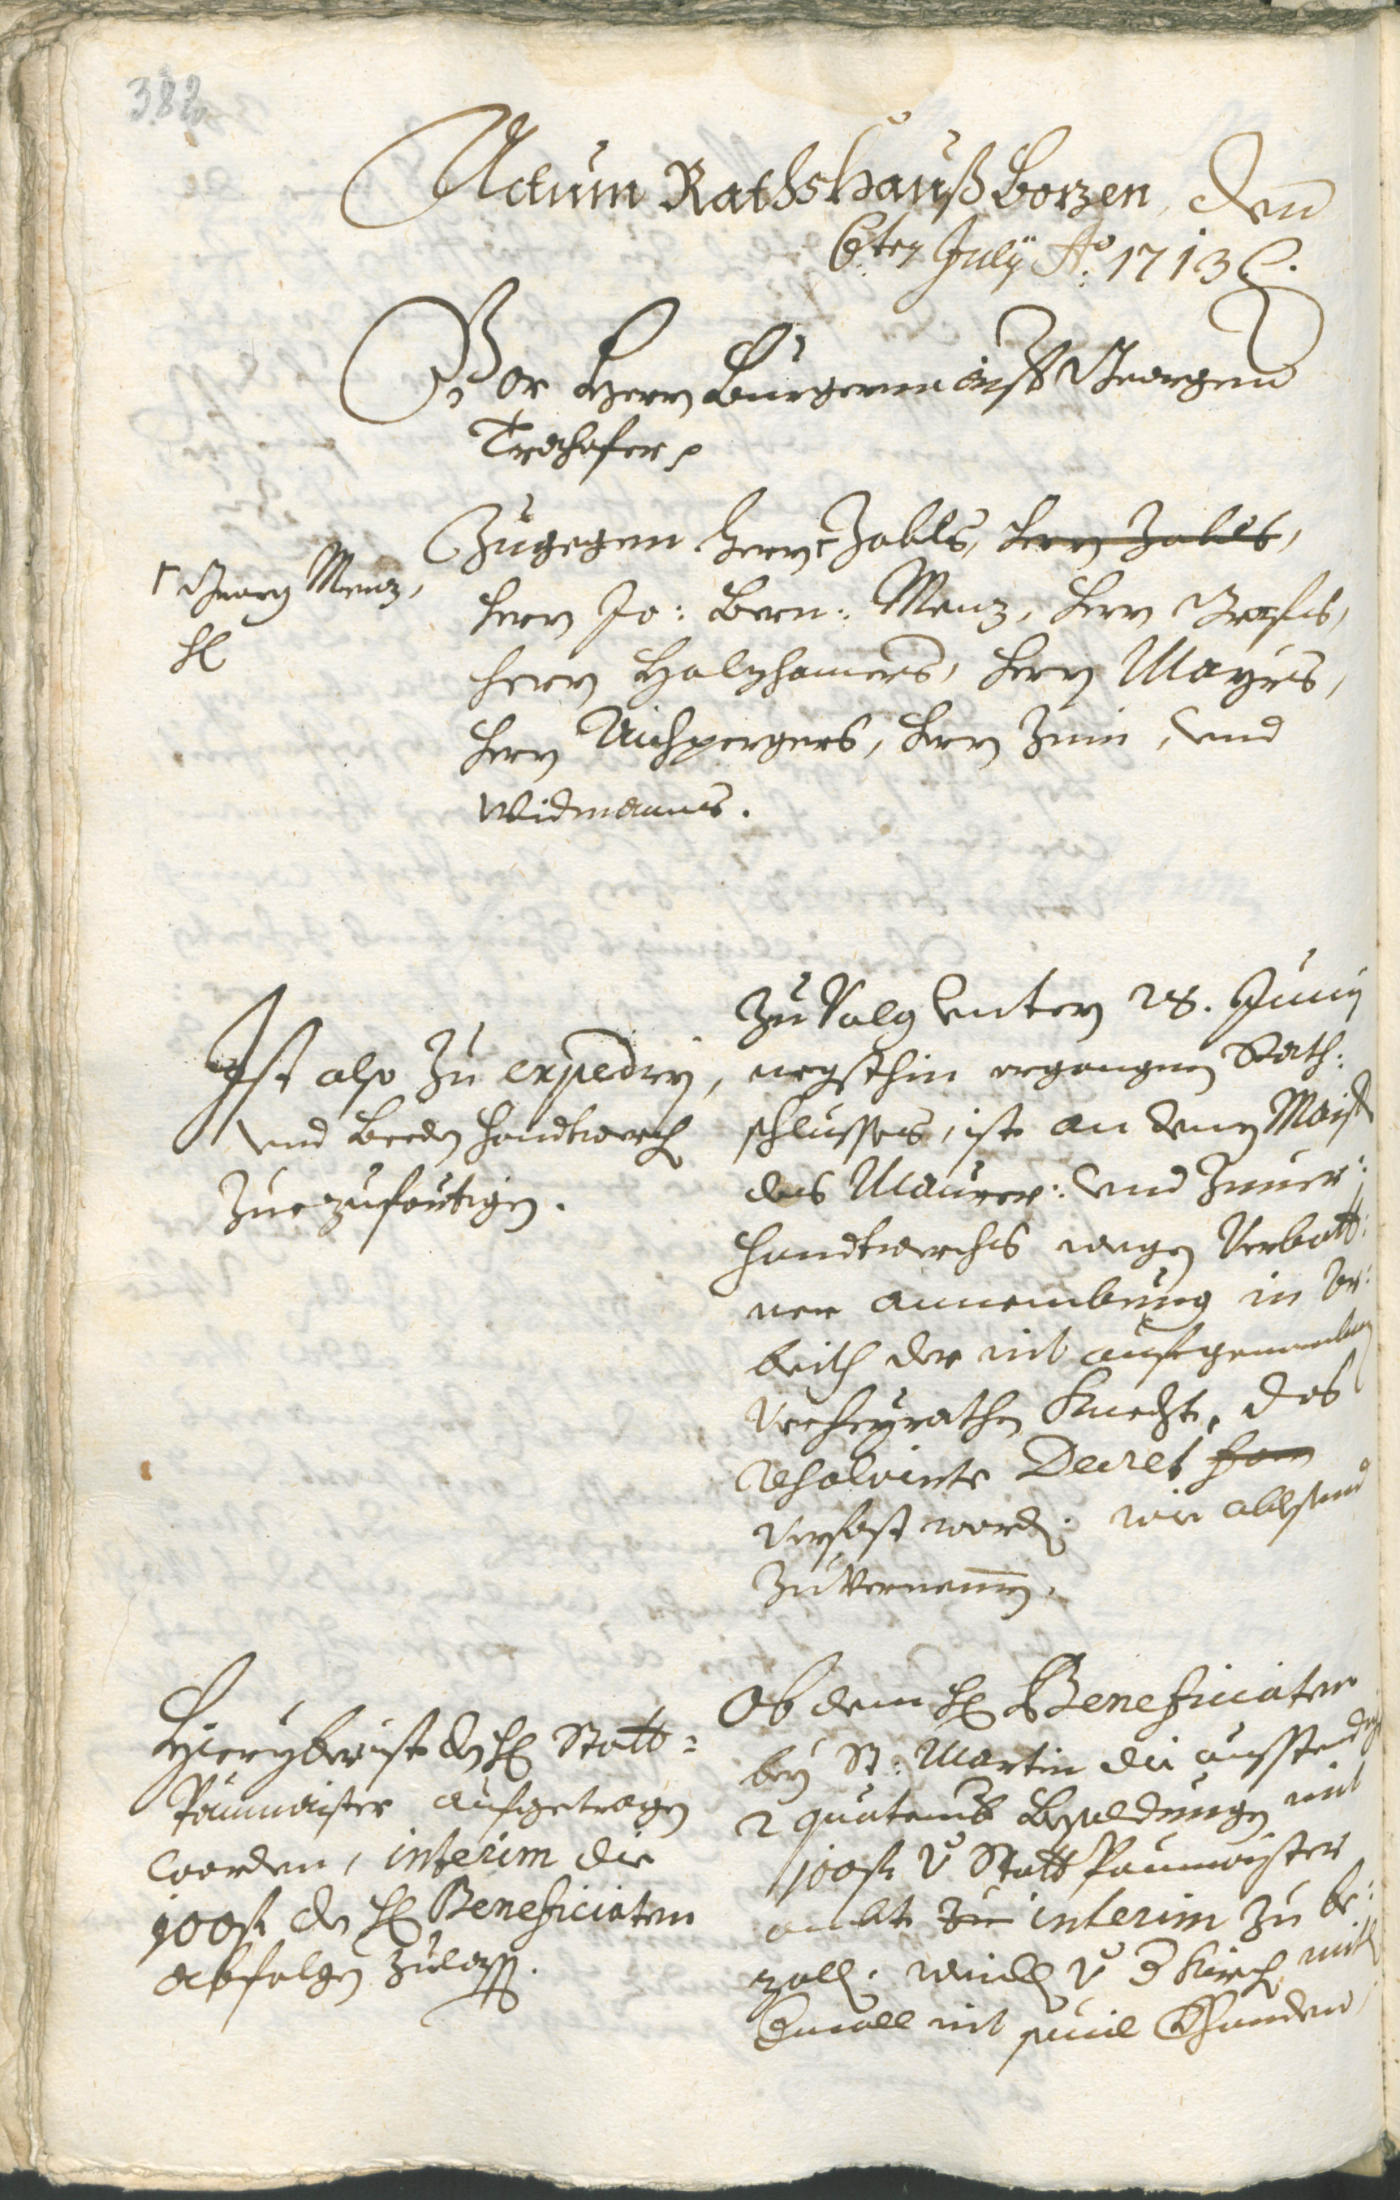 382
Actum Rathshauß Bozen, den
6ten July Ao: 1713 
Vor Herrn Burgermaister Georgen
Trechsler
Zugegen herrn Zobls, herrn Zobls,
Georg Menz,
hl
herrn Jo: Bern: Menz, herrn Grafens,
herrn Holzhamers, herrn Mayrs,
herrn Aichpergers, herrn Zinn, vnd
Widmanns.
Ist also zu expediern,
vnd beeden Handtwerch
zuezufertigen.
Zu Volg vnterm 28. Juny
negsthin ergangnen Rath:
schlusses, ist an denen Maister
des Maurer: vnd Zimer:
handtwerchs wegen Verbott:
ner annembung in Ar:
beith der nit aufgenombnen
Verheyrathen Knecht, das
resolvirte Decret
verfast worden. wie ablesend
zu vernemmen.
Hieryber ist dem H: Statt=
Paumaister aufgetragen
worden, interim die
100 fl dem H: Beneficiaten
abfolgen zulassen.
Ob dem H: Beneficiaten
bey St: Martin die ausstendige
2 quatember Besoldungen mit
100 fl v: Statt Paumaister
ambt zu interim zu be:
zallen. weillen v: der Kirchen mitl
Einmall nit souil Verhanden,